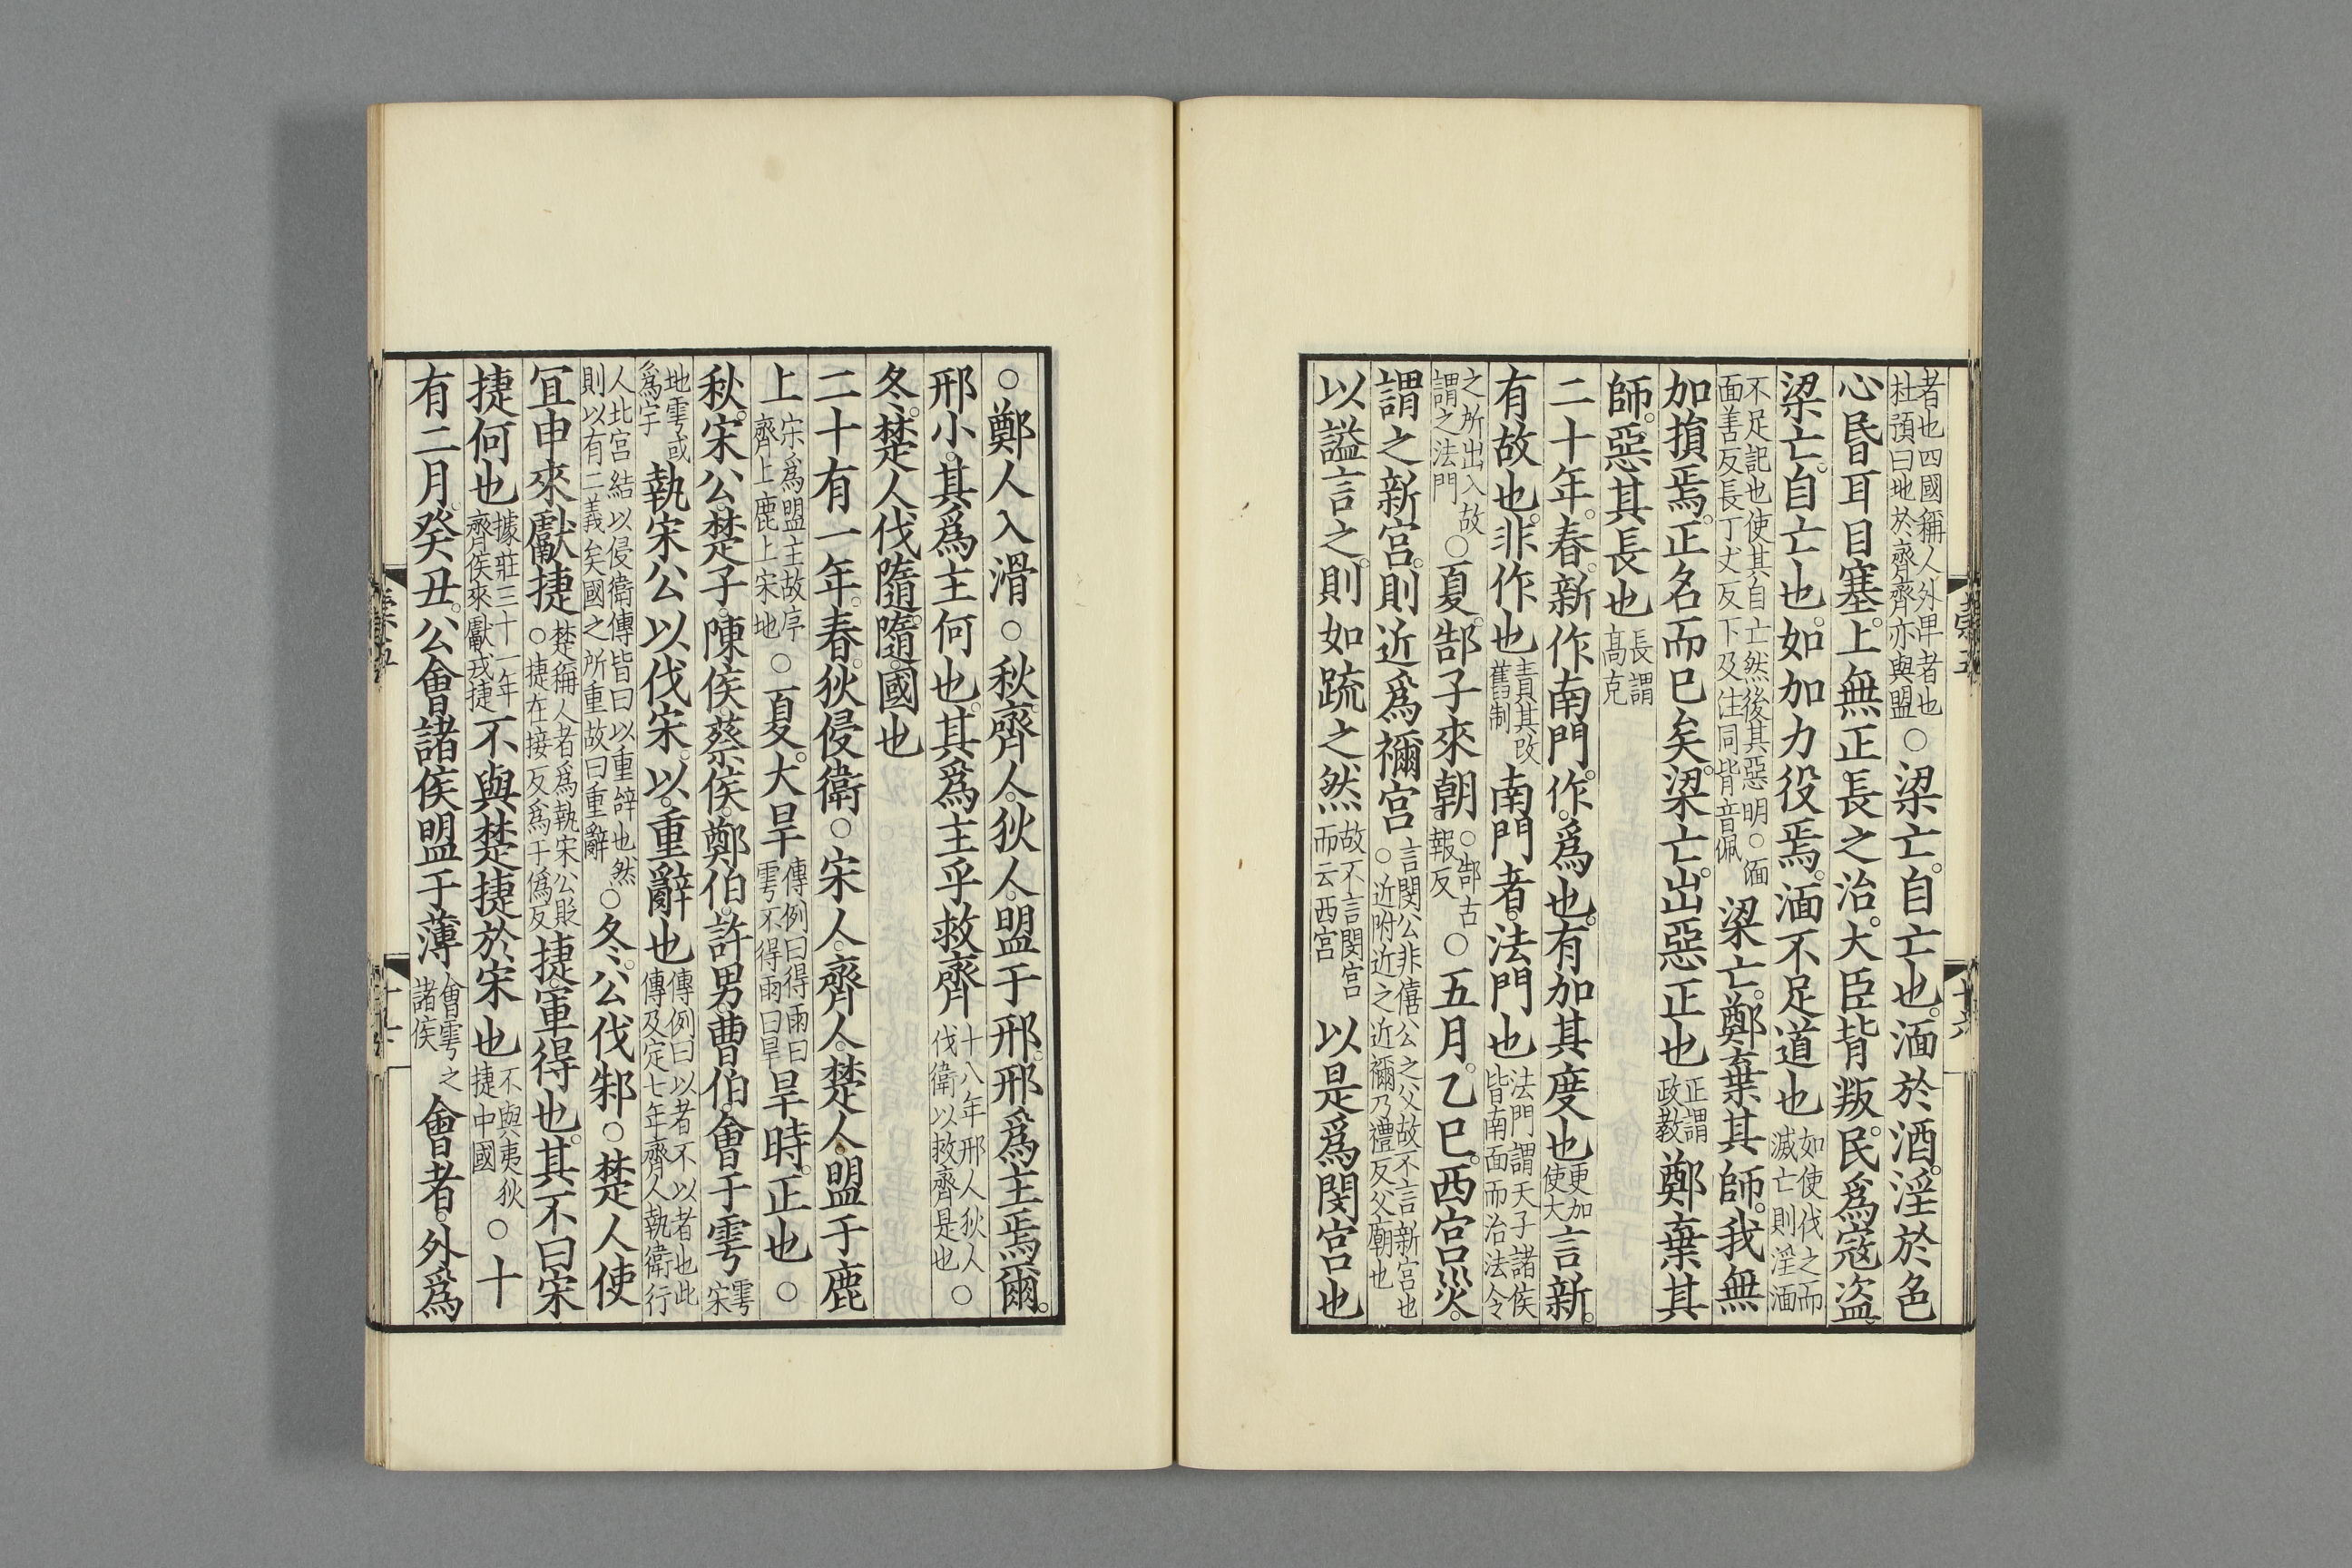 者也四國稱人外卑者也杜預曰地於齊齊亦與盟○梁亡。自亡也。湎於酒。淫於色
心昬耳目塞。上無正長之治。大臣背叛。民爲寇盜。
梁亡。自亡也。如加力役焉。湎不足道也如使伐之而滅亡則淫湎
不足記也使其自亡然後其惡明○湎面善反長丁丈反下及注同背音佩梁亡。鄭棄其師。我無
加損焉。正名而已矣。梁亡。出惡正也正謂政教鄭棄其
師。惡其長也長謂高克
二十年。春。新作南門。作。爲也。有加其度也更加使大言新。
有故也。非作也責其改舊制南門者。法門也法門謂天子諸侯皆南面而治法令
之所出入故謂之法門○夏。郜子來朝。○郜古報反○五月。乙巳。西宮災。
謂之新宮。則近爲禰宮言閔公非僖公之父故不言新宮也○近附近之近禰乃禮反父廟也
以謚言之。則如疏之然故不言閔宮而云西宮以是爲閔宮也
○鄭人入滑○秋。齊人。狄人。盟于邢。邢爲主焉爾。
邢小。其爲主何也。其爲主乎救齊十八年邢人狄人伐衛以救齊是也○
冬。楚人伐隨。隨。國也
二十有一年。春。狄侵衛○宋人。齊人。楚人。盟于鹿
上宋爲盟主故序齊上鹿上宋地○夏。大旱傳例曰得雨曰雩不得雨曰旱旱時。正也○
秋。宋公。楚子。陳侯。蔡侯。鄭伯。許男。曹伯。會于雩雩宋
地雩或爲宇執宋公以伐宋。以。重辭也傳例曰以者不以者也此傳及定七年齊人執衛行
人北宮結以侵衛傳皆曰以重辭也然則以有二義矣國之所重故曰重辭○冬。公伐邾○楚人使
宜申來獻捷楚稱人者爲執宋公貶○捷在接反爲于僞反捷。軍得也。其不曰宋
捷何也據莊三十一年齊侯來獻戎捷不與楚捷於宋也不與夷狄捷中國○十
有二月。癸丑。公會諸侯盟于薄會雩之諸侯會者。外爲